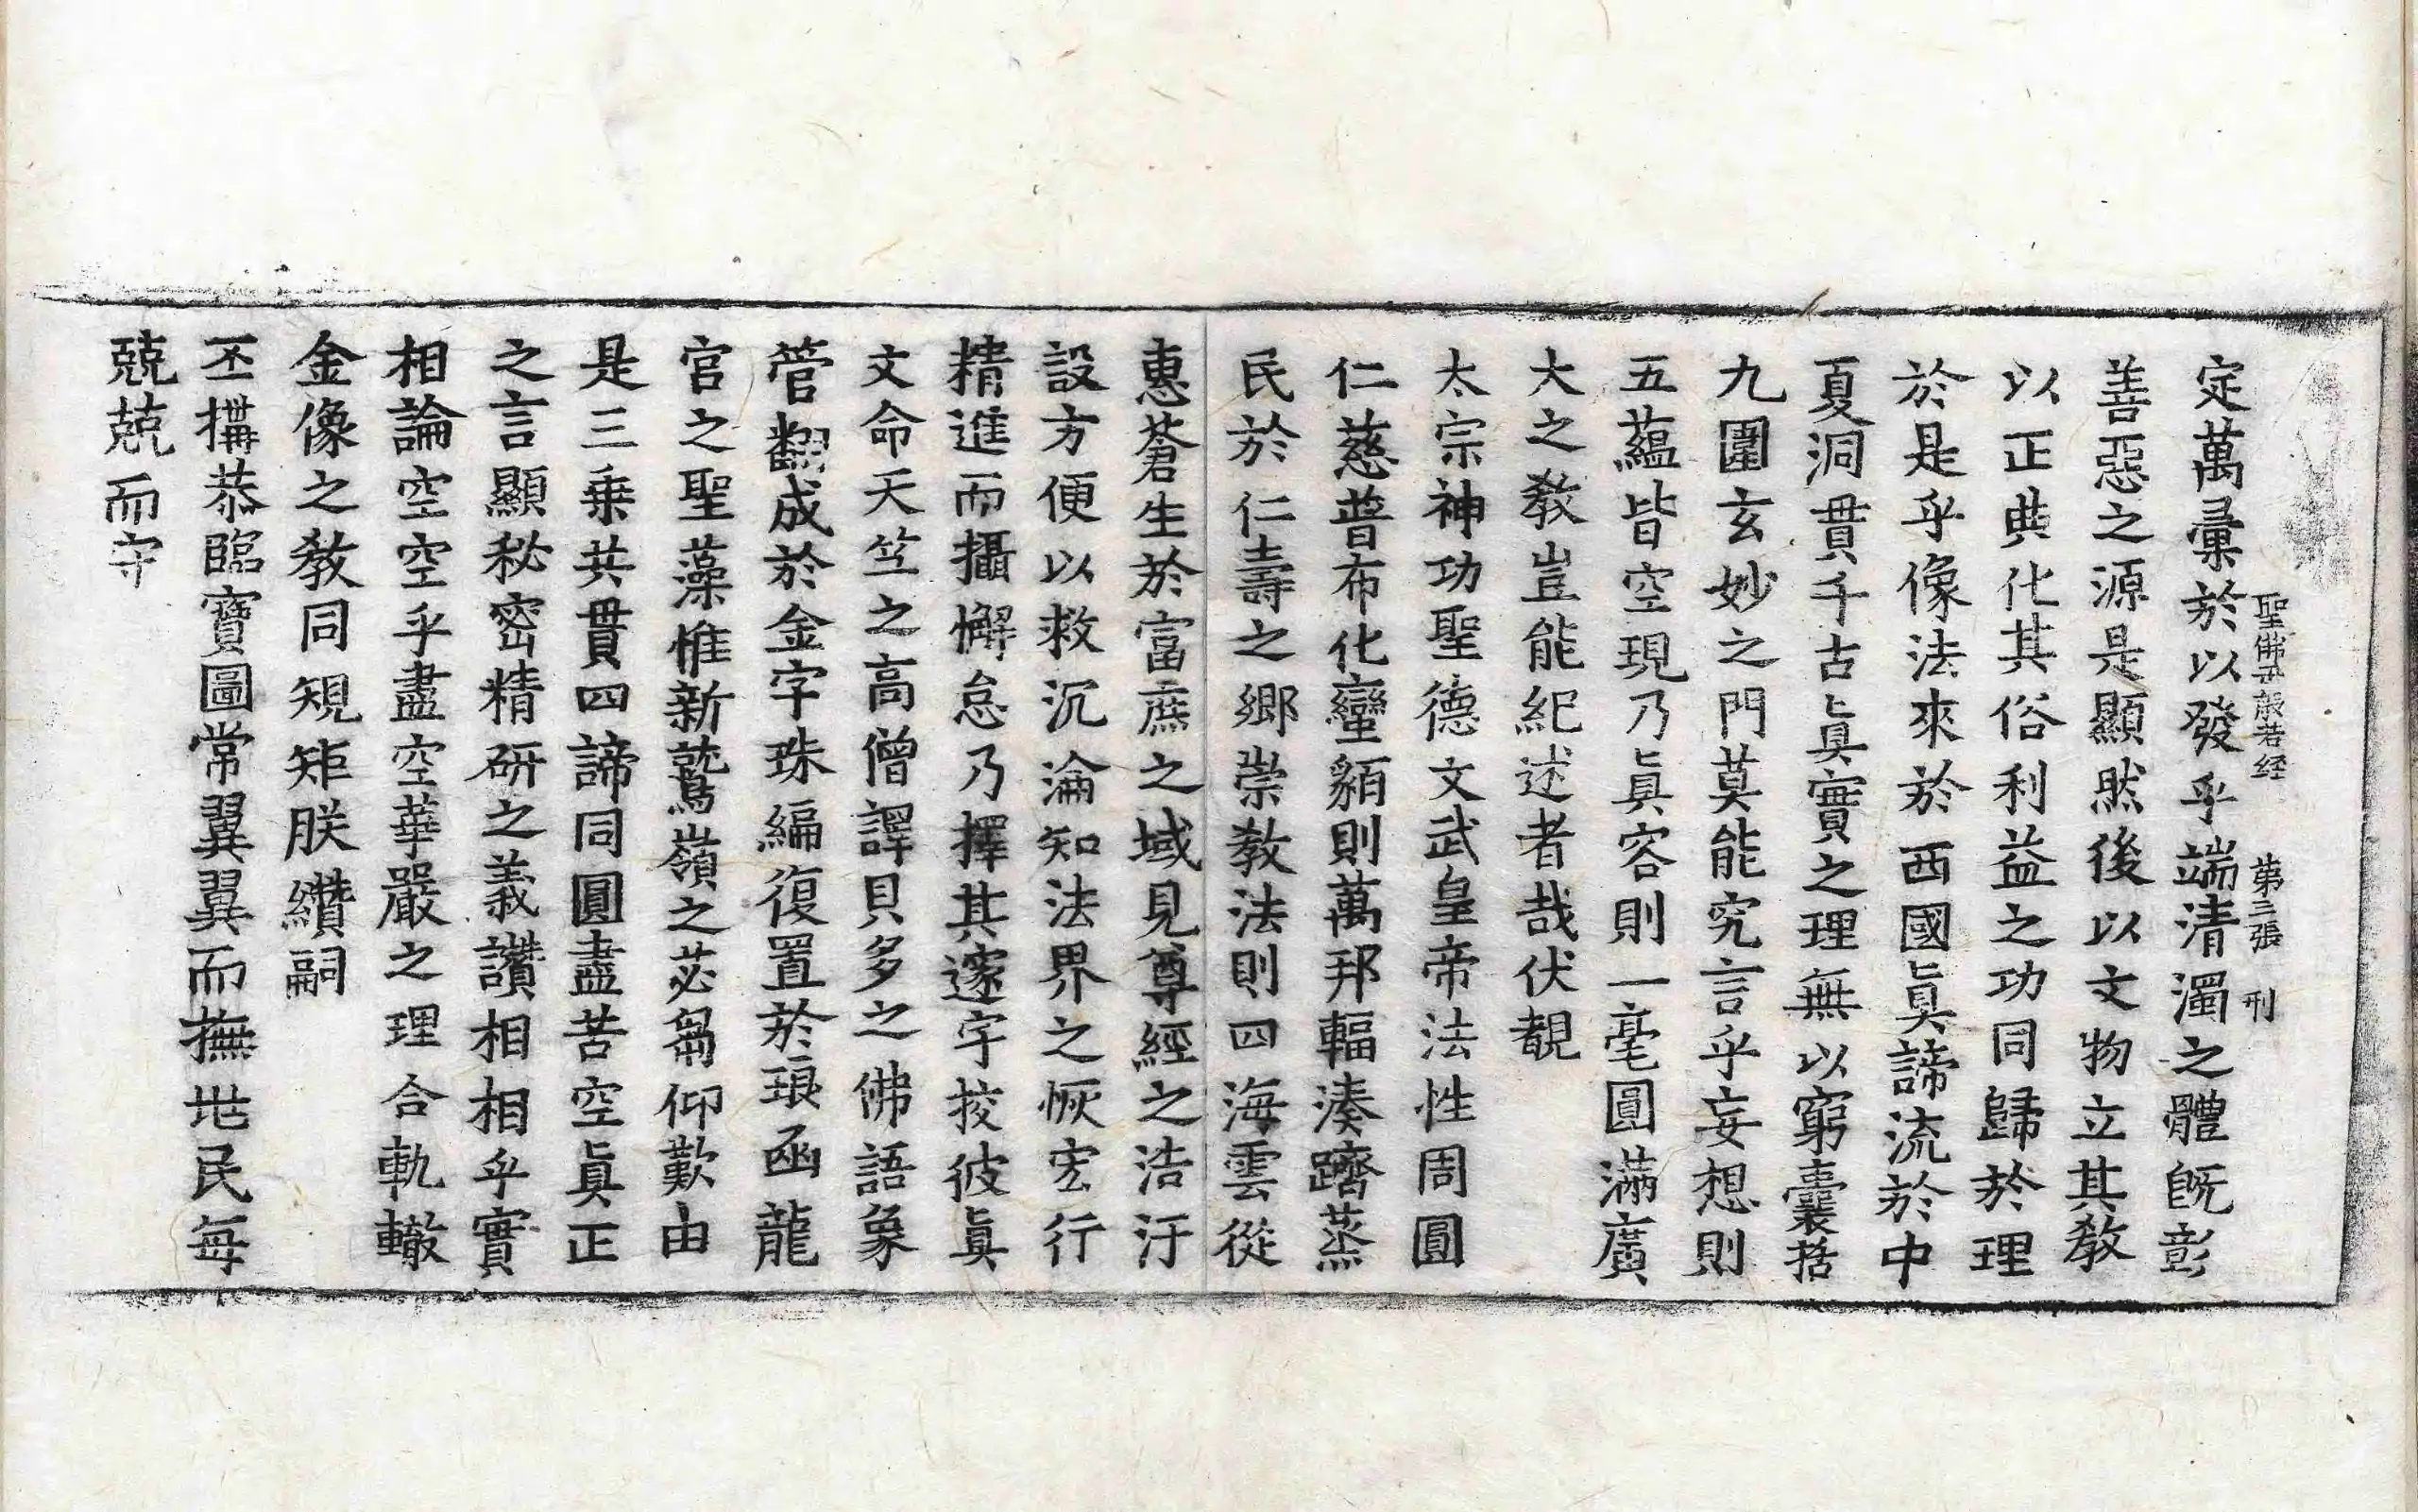 聖佛母般若経 第三張 刊
定萬彙於以發乎端清濁之體旣彰
善惡之源是顯然後以文物立其教
以正典化其俗利益之功同歸於理
於是乎像法來於西國眞諦流於中
夏洞貫千古眞實之理無以窮囊括
九圍玄妙之門莫能究言乎妄想則
五蘊皆空現乃眞容則一毫圓滿廣
大之教豈能紀述者哉伏覩
太宗神功聖德文武皇帝法性周圓
仁慈普布化蠻貊則萬邦輻湊躋蒸
民於仁壽之鄉崇教法則四海雲從
惠蒼生於富庶之域見尊經之浩汙
設方便以救沉淪知法界之恢宏行
精進而攝懈怠乃擇其邃宇挍彼眞
文命天竺之高僧譯貝多之佛語象
管翻成於金字珠編復置於琅函龍
宮之聖藻惟新鷲嶺之苾蒭仰歎由
是三乗共貫四諦同圓盡苦空眞正
之言顯秘密精研之義讚相相乎實
相論空空乎盡空華嚴之理合軌轍
金像之教同規矩朕纘嗣
丕搆恭臨寶圖常翼翼而撫世民每
兢兢而守